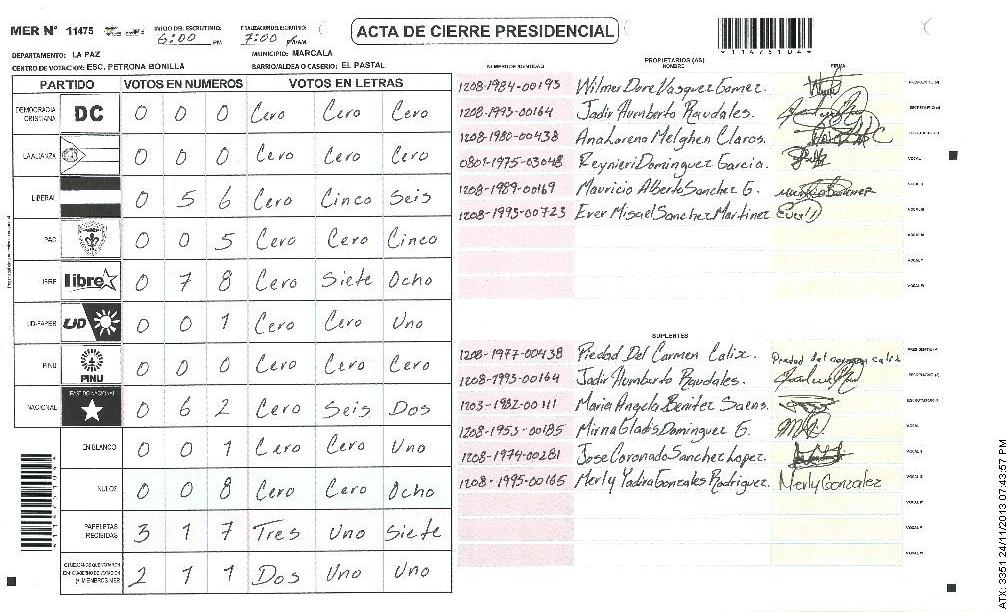 MER Nº 11475 INICIO DEL ESCRUTINIO: 6:00 PM FINALIZACION DEL ESCRUTINIO: 7:00 PM/AM
ACTA DE CIERRE PRESIDENCIAL
DEPARTAMENTO: LA PAZ MUNICIPIO: MARCALA
CENTRO DE VOTACION: ESC. PETRONA BONILLA BARRIO/ALDEA O CASERIO: EL PASTAL
PARTIDO VOTOS EN NUMEROS VOTOS EN LETRAS
DEMOCRACIA CRISTIANA DC 0 0 0 Cero Cero Cero
LA ALIANZA 0 0 0 Cero Cero Cero
LIBERAL 0 5 6 Cero Cinco Seis
PAC 0 0 5 Cero Cero Cinco
LIBRE libre 0 7 8 Cero Siete Ocho
UD-FAPER UD 0 0 1 Cero Cero Uno
PINU PINU 0 0 0 Cero Cero Cero
NACIONAL PARTIDO NACIONAL 0 6 2 Cero Seis Dos
EN BLANCO 0 0 1 Cero Cero Uno
NULOS 0 0 8 Cero Cero Ocho
PAPELETAS RECIBIDAS 3 1 7 Tres Uno Siete
CIUDADANOS QUE VOTARON EN CUADERNO DE VOTACION (+ MIEMBROS MER) 2 1 1 Dos Uno Uno
PROPIETARIOS (AS)
NUMERO DE IDENTIDAD NOMBRE FIRMA
1208-1984-00193 Wilmer Dore Vasquez Gomez. PRESIDENTE (A)
1208-1993-00164 Jadir Humberto Raudales. SECRETARIO (A)
1208-1980-00438 Ana Lorena Melghen Claros. ESCRUTADOR (A)
0801-1975-03048 Reynieri Dominguez Garcia. VOCAL I
1208-1989-00169 Mauricio Alberto Sanchez G. VOCAL II
1208-1993-00723 Ever Misael Sanchez Martinez VOCAL III
VOCAL IV
VOCAL V
VOCAL VI
SUPLENTES
1208-1977-00438 Piedad Del Carmen Calix. Piedad del carmen calix PRESIDENTE (A)
1208-1993-00164 Jadir Humberto Raudales. SECRETARIO (A)
1203-1982-00111 Maria Angela Benitez Saens. ESCRUTADOR (A)
1208-1953-00185 Mirna Gladis Dominguez G. VOCAL I
1208-1974-00281 Jose Coronado Sanchez Lopez. VOCAL II
1208-1995-00165 Merly Yadira Gonzales Rodriguez. Merly Gonzalez VOCAL III
VOCAL IV
VOCAL V
VOCAL VI
ATX: 3351 24/11/2013 07:43:57 PM